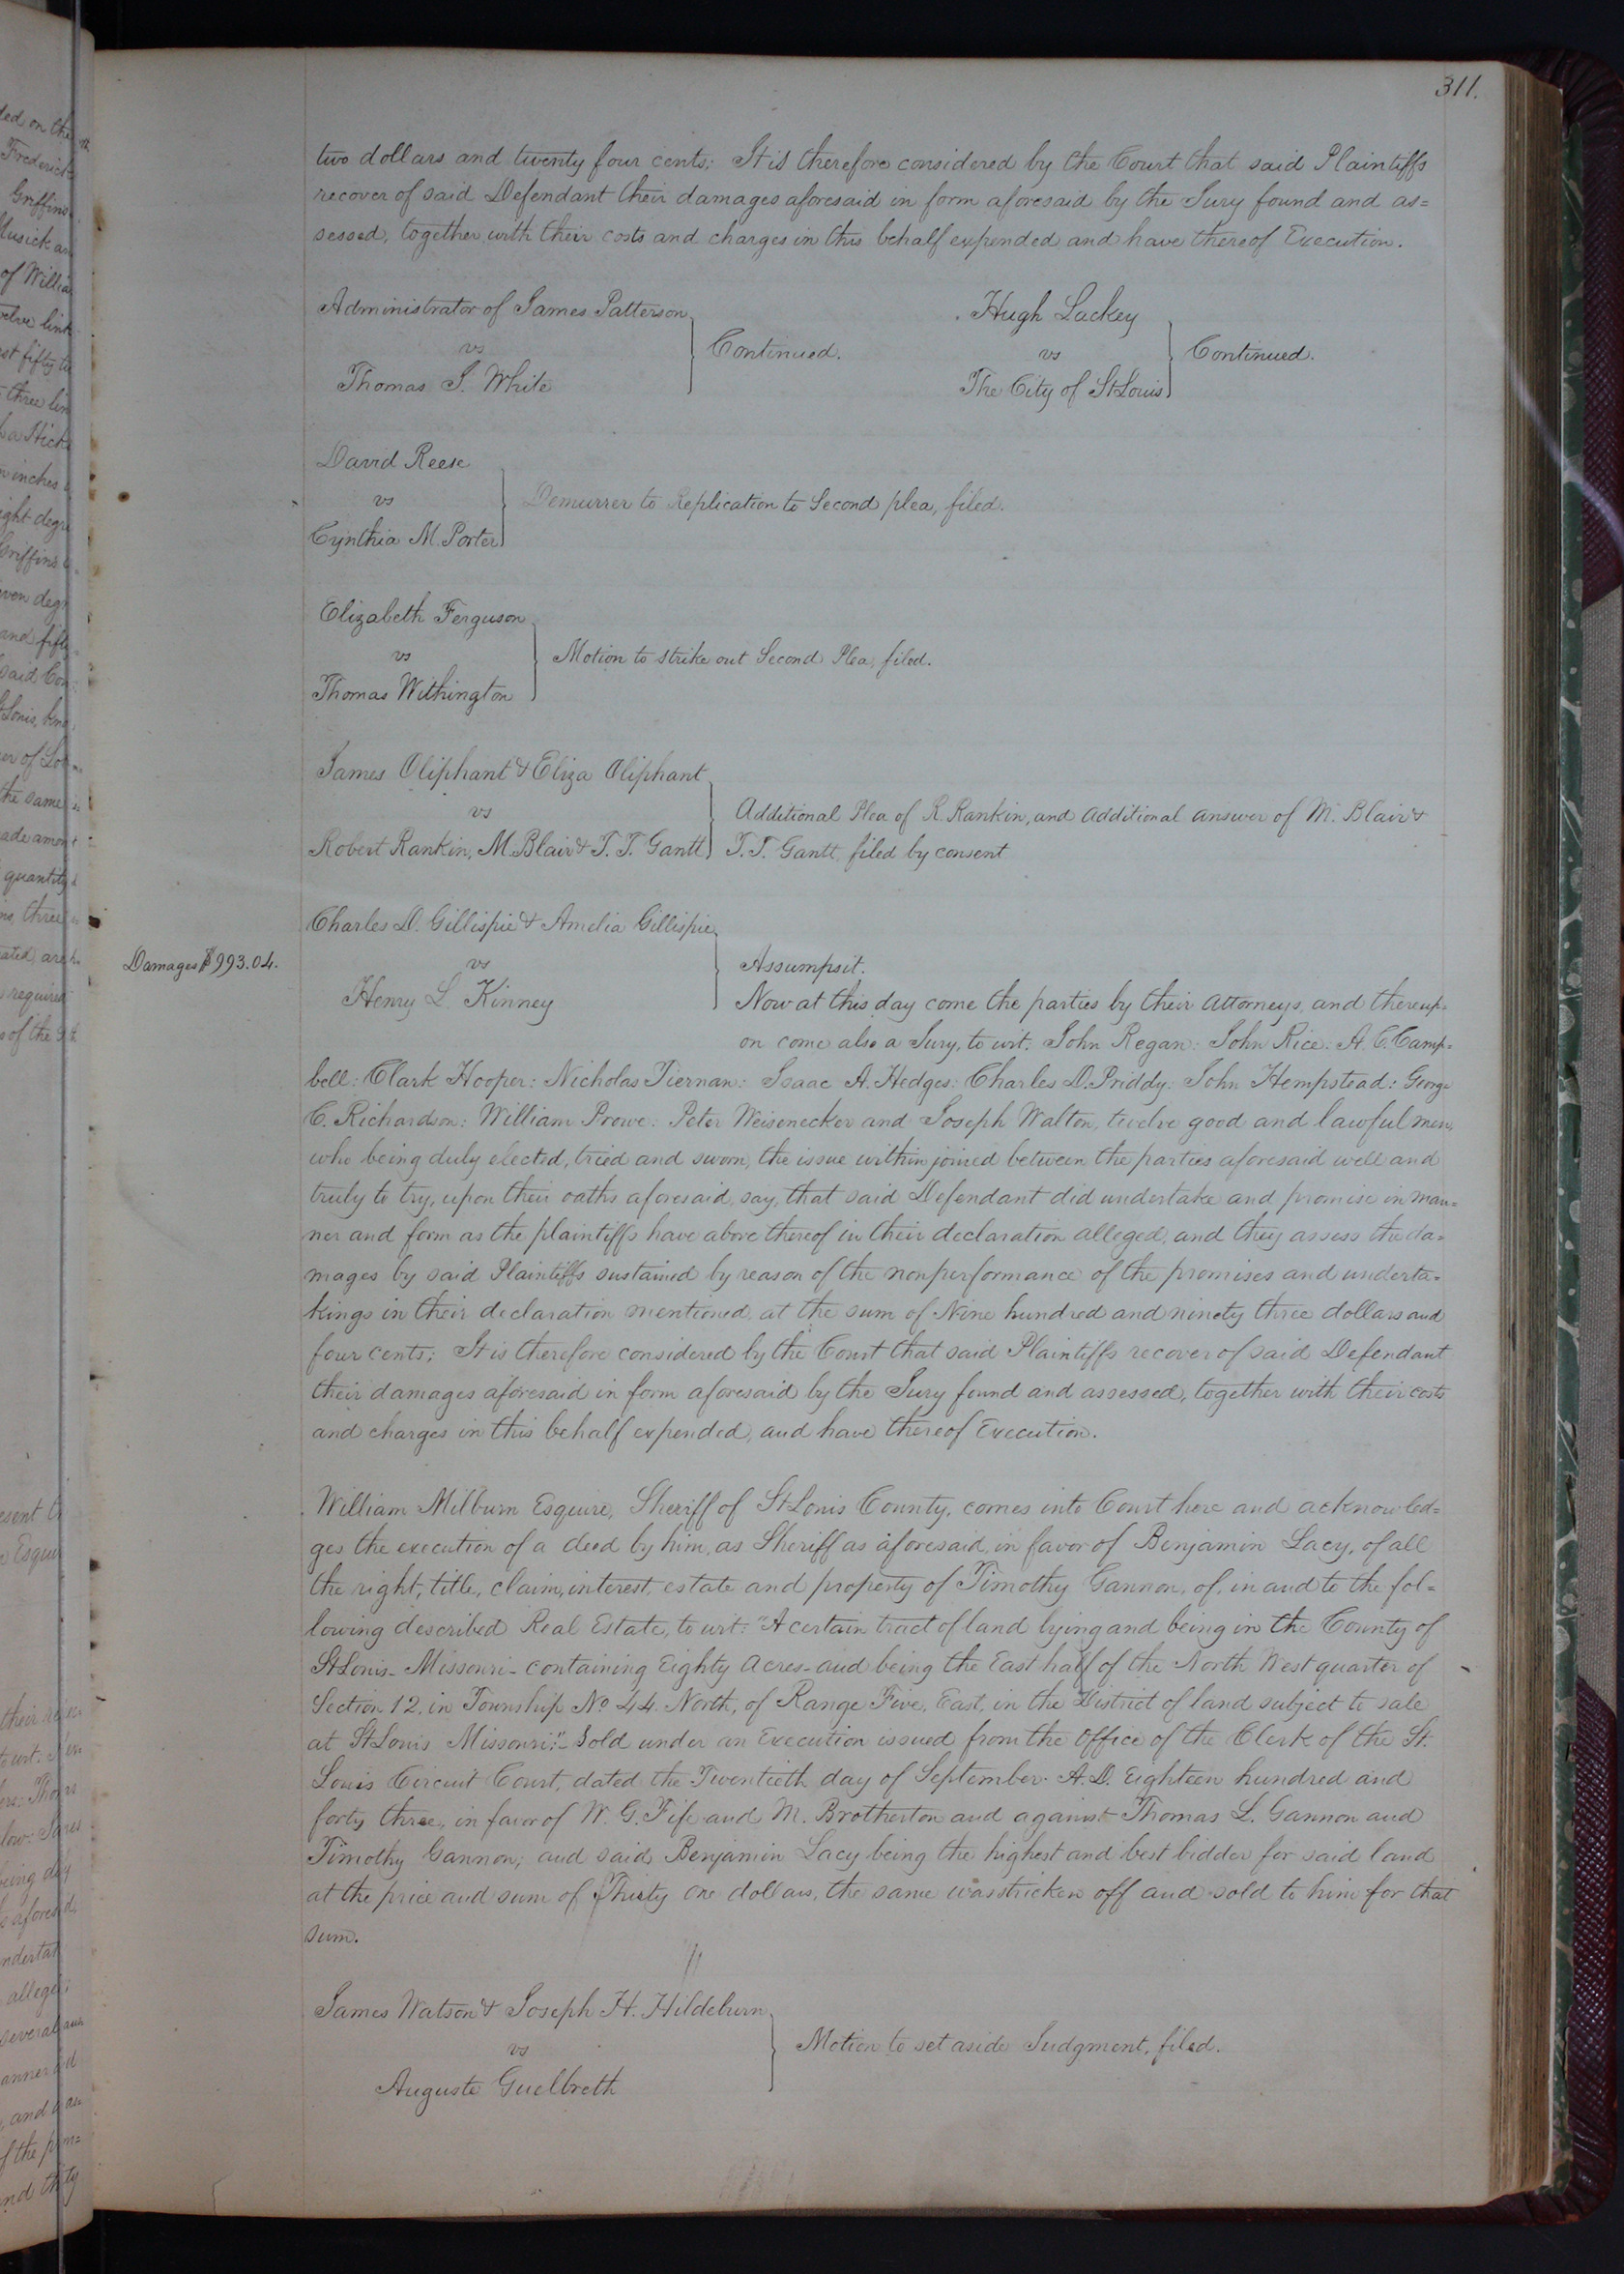 311.
two dollars and twenty four cents; It is therefore considered by the Court that said Plaintiffs
recover of said Defendant their damages aforesaid in form aforesaid by the Jury found and as=
sessed, together with their costs and charges in this behalf expended and have thereof Execution.
Administrator of James Patterson
vs
Thomas J. White
Continued.
Hugh Lackey
vs
The City of St Louis
Continued.
David Reese
vs
Cynthia M. Porter
Demurrer to Replication to Second plea, filed.
Elizabeth Ferguson
vs
Thomas Withington
Motion to strike out Second Plea, filed.
James Oliphant & Eliza Oliphant
vs
Robert Rankin, M. Blair & T. T. Gantt
Additional Plea of R. Rankin, and additional answer of M. Blair &
T. T. Gantt, filed by consent
Damages $993.04.
Charles D. Gillispie & Amelia Gillispie
vs
Henry L. Kinney
Assumpsit.
Now at this day come the parties by their attorneys, and thereup=
on come also a Jury, to wit: John Regan: John Rice: A. C. Camp=
bell: Clark Hooper: Nicholas Tiernan: Isaac A. Hedges: Charles D. Priddy: John Hempstead: George
C. Richardson: William Prowe: Peter Weisenecker and Joseph Walton, twelve good and lawful men,
who being duly elected, tried and sworn, the issue within joined between the parties aforesaid well and
truly to try, upon their oaths aforesaid, say, that said Defendant did undertake and promise in man=
ner and form as the plaintiffs have above thereof in their declaration alleged, and they assess the da=
mages by said Plaintiffs sustained by reason of the nonperformance of the promises and underta=
kings in their declaration mentioned, at the sum of Nine hundred and ninety three dollars and
four cents; It is therefore considered by the Court that said Plaintiffs recover of said Defendant
their damages aforesaid in form aforesaid by the Jury found and assessed, together with their costs
and charges in this behalf expended, and have thereof Execution.
William Milburn Esquire, Sheriff of St Louis County, comes into Court here and acknowled=
ges the execution of a deed by him, as Sheriff as aforesaid, in favor of Benjamin Lacy, of all
the right, title, claim, interest, estate and property of Timothy Gannon, of, in and to the fol=
lowing described Real Estate, to wit: "A certain tract of land lying and being in the County of
St Louis - Missouri - containing Eighty Acres - and being the East half of the North West quarter of
Section 12, in Township No 44 North, of Range Five, East, in the District of land subject to sale
at St Louis Missouri:" - Sold under an Execution issued from the Office of the Clerk of the St.
Louis Circuit Court, dated the Twentieth day of September A.D. Eighteen hundred and
forty three, in favor of W. G. Fife and M. Brotherton and against Thomas L. Gannon and
Timothy Gannon; and said Benjamin Lacy being the highest and best bidder for said land
at the price and sum of Thirty one dollars, the same was stricken off and sold to him for that
sum.
James Watson & Joseph H. Hildeburn
vs
Auguste Guelbreth
Motion to set aside Judgment, filed.